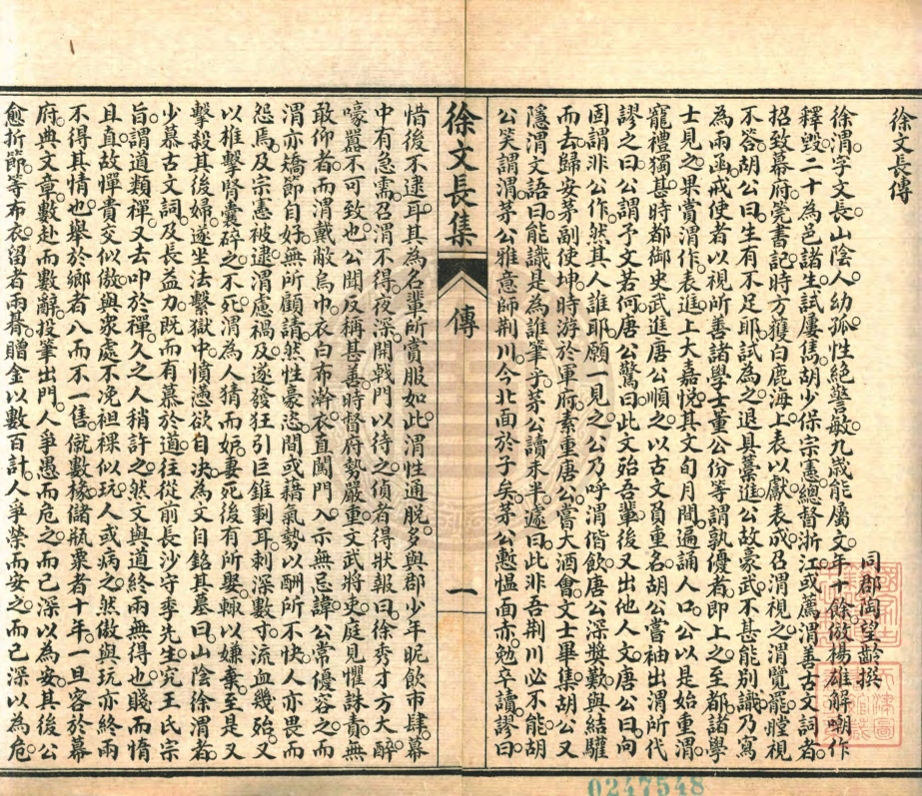 徐文長傳
同郡陶望齡撰
徐渭字文長山陰人幼孤性絕警敏九歲能屬文年十餘倣楊雄解嘲作
釋毀二十為邑諸生試屢雋胡少保宗憲總督浙江或薦渭善古文詞者
招致幕府筦書記時方獲白鹿海上表以獻表成召渭視之渭覽罷瞠視
不答胡公曰生有不足耶試為之退具藁進公故豪武不甚能別識乃寫
為兩函戒使者以視所善諸學士董公份等謂孰優者即上之至都諸學
士見之果賞渭作表進上大嘉悅其文旬月間遍誦人口公以是始重渭
寵禮獨甚時都御史武進唐公順之以古文負重名胡公嘗袖出渭所代
謬之曰公謂予文若何唐公驚曰此文殆吾輩後又出他人文唐公曰向
固謂非公作然其人誰耶願一見之公乃呼渭偕飲唐公深獎歎與結驩
而去歸安茅副使坤時游於軍府素重唐公嘗大酒會文士畢集胡公又
隱渭文語曰能識是為誰筆乎茅公讀未半遽曰此非吾荆川必不能胡
公笑謂渭茅公雅意師荆川今北面於子矣茅公慙慍面赤勉卒讀謬曰
徐文長集
傳
一
惜後不逮耳其為名輩所賞服如此渭性通脫多與郡少年昵飲市肆幕
中有急需召渭不得夜深開戟門以待之偵者得狀報曰徐秀才方大醉
嚎囂不可致也公聞反稱甚善時督府勢嚴重文武將吏庭見懼誅責無
敢仰者而渭戴敝烏巾衣白布澣衣直闖門入示無忌諱公常優容之而
渭亦矯節自好無所顧請然性豪恣間或藉氣勢以酬所不快人亦畏而
怨焉及宗憲被逮渭慮禍及遂發狂引巨錐剚耳刺深數寸流血幾殆又
以椎擊腎囊碎之不死渭為人猜而妒妻死後有所娶輒以嫌棄至是又
擊殺其後婦遂坐法繫獄中憤懣欲自决為文自銘其墓曰山陰徐渭者
少慕古文詞及長益力既而有慕於道往從前長沙守季先生究王氏宗
旨謂道類禪又去叩於禪久之人稍許之然文與道終兩無得也賤而惰
且直故憚貴交似傲與眾處不浼袒裸似玩人或病之然傲與玩亦終兩
不得其情也舉於鄉者八而不一售僦數椽儲瓶粟者十年一旦客於幕
府典文章數赴而數辭投筆出門人爭愚而危之而已深以為安其後公
愈折節等布衣留者兩朞贈金以數百計人爭榮而安之而已深以為危
0247548